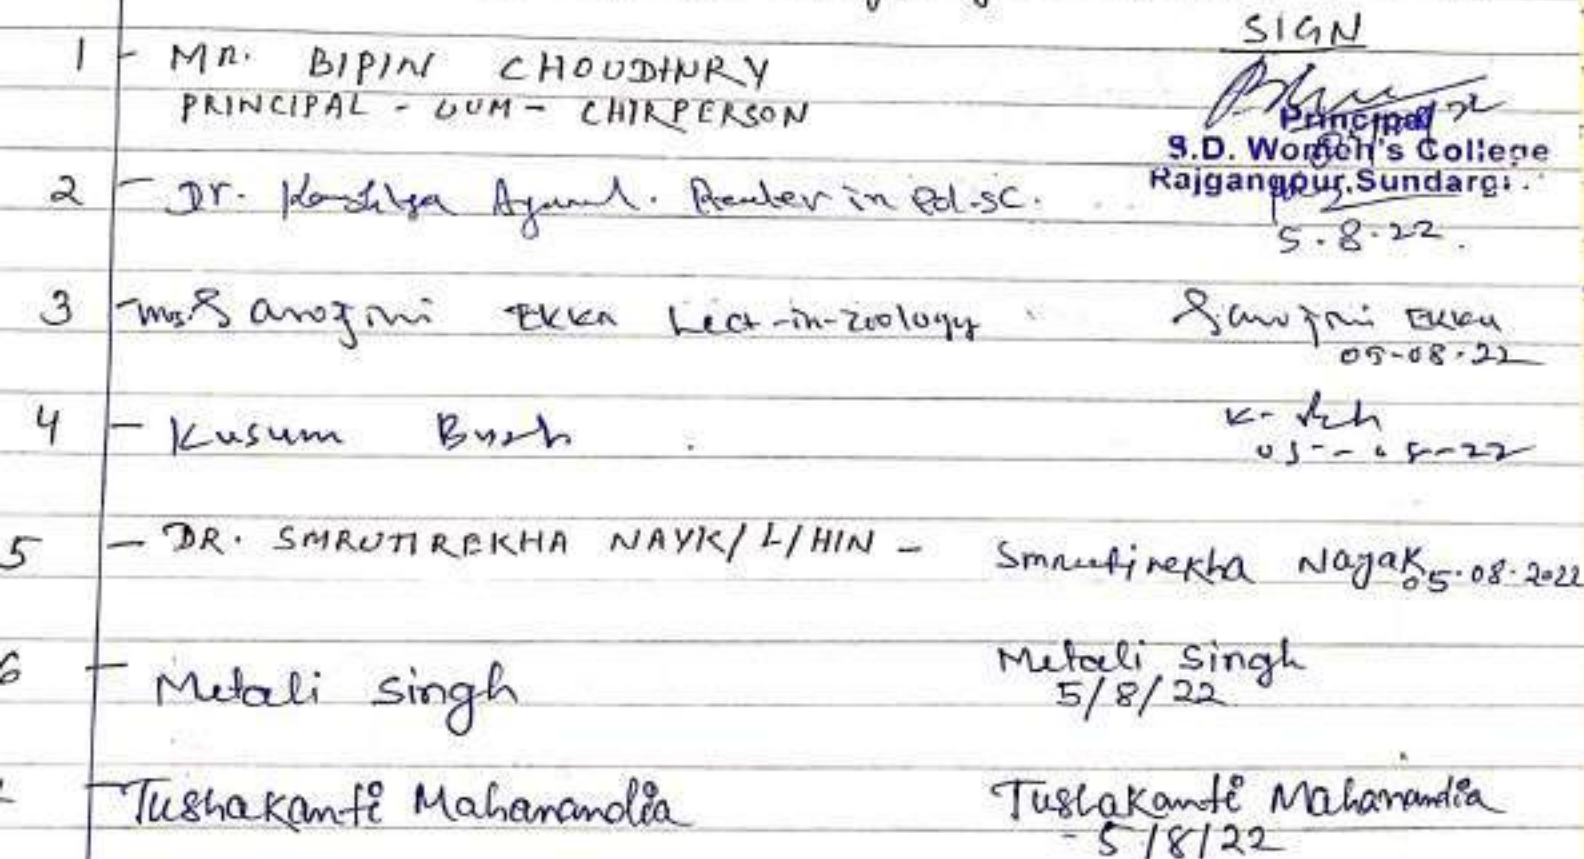 SIGN
1 - MR. BIPIN CHOUDHURY
PRINCIPAL - CUM - CHIRPERSON
Principal
S.D. Women's College
Rajgangpur, Sundargi.
2 - Dr. Agarwal. Reader in Pol.sc.
5.8.22.
3 - Ms. Sarojini EKKA Lect-in-Zoology Sarojini EKKA
05-08-22
4 - Kusum K-
05-08-22
5 - DR. SMRUTIREKHA NAYK/L/HIN - Smrutirekha Nayak 05.08.2022
6 - Mitali Singh Mitali Singh
5/8/22
- Tushakanti Mahanandia Tushakanti Mahanandia
- 5/8/22